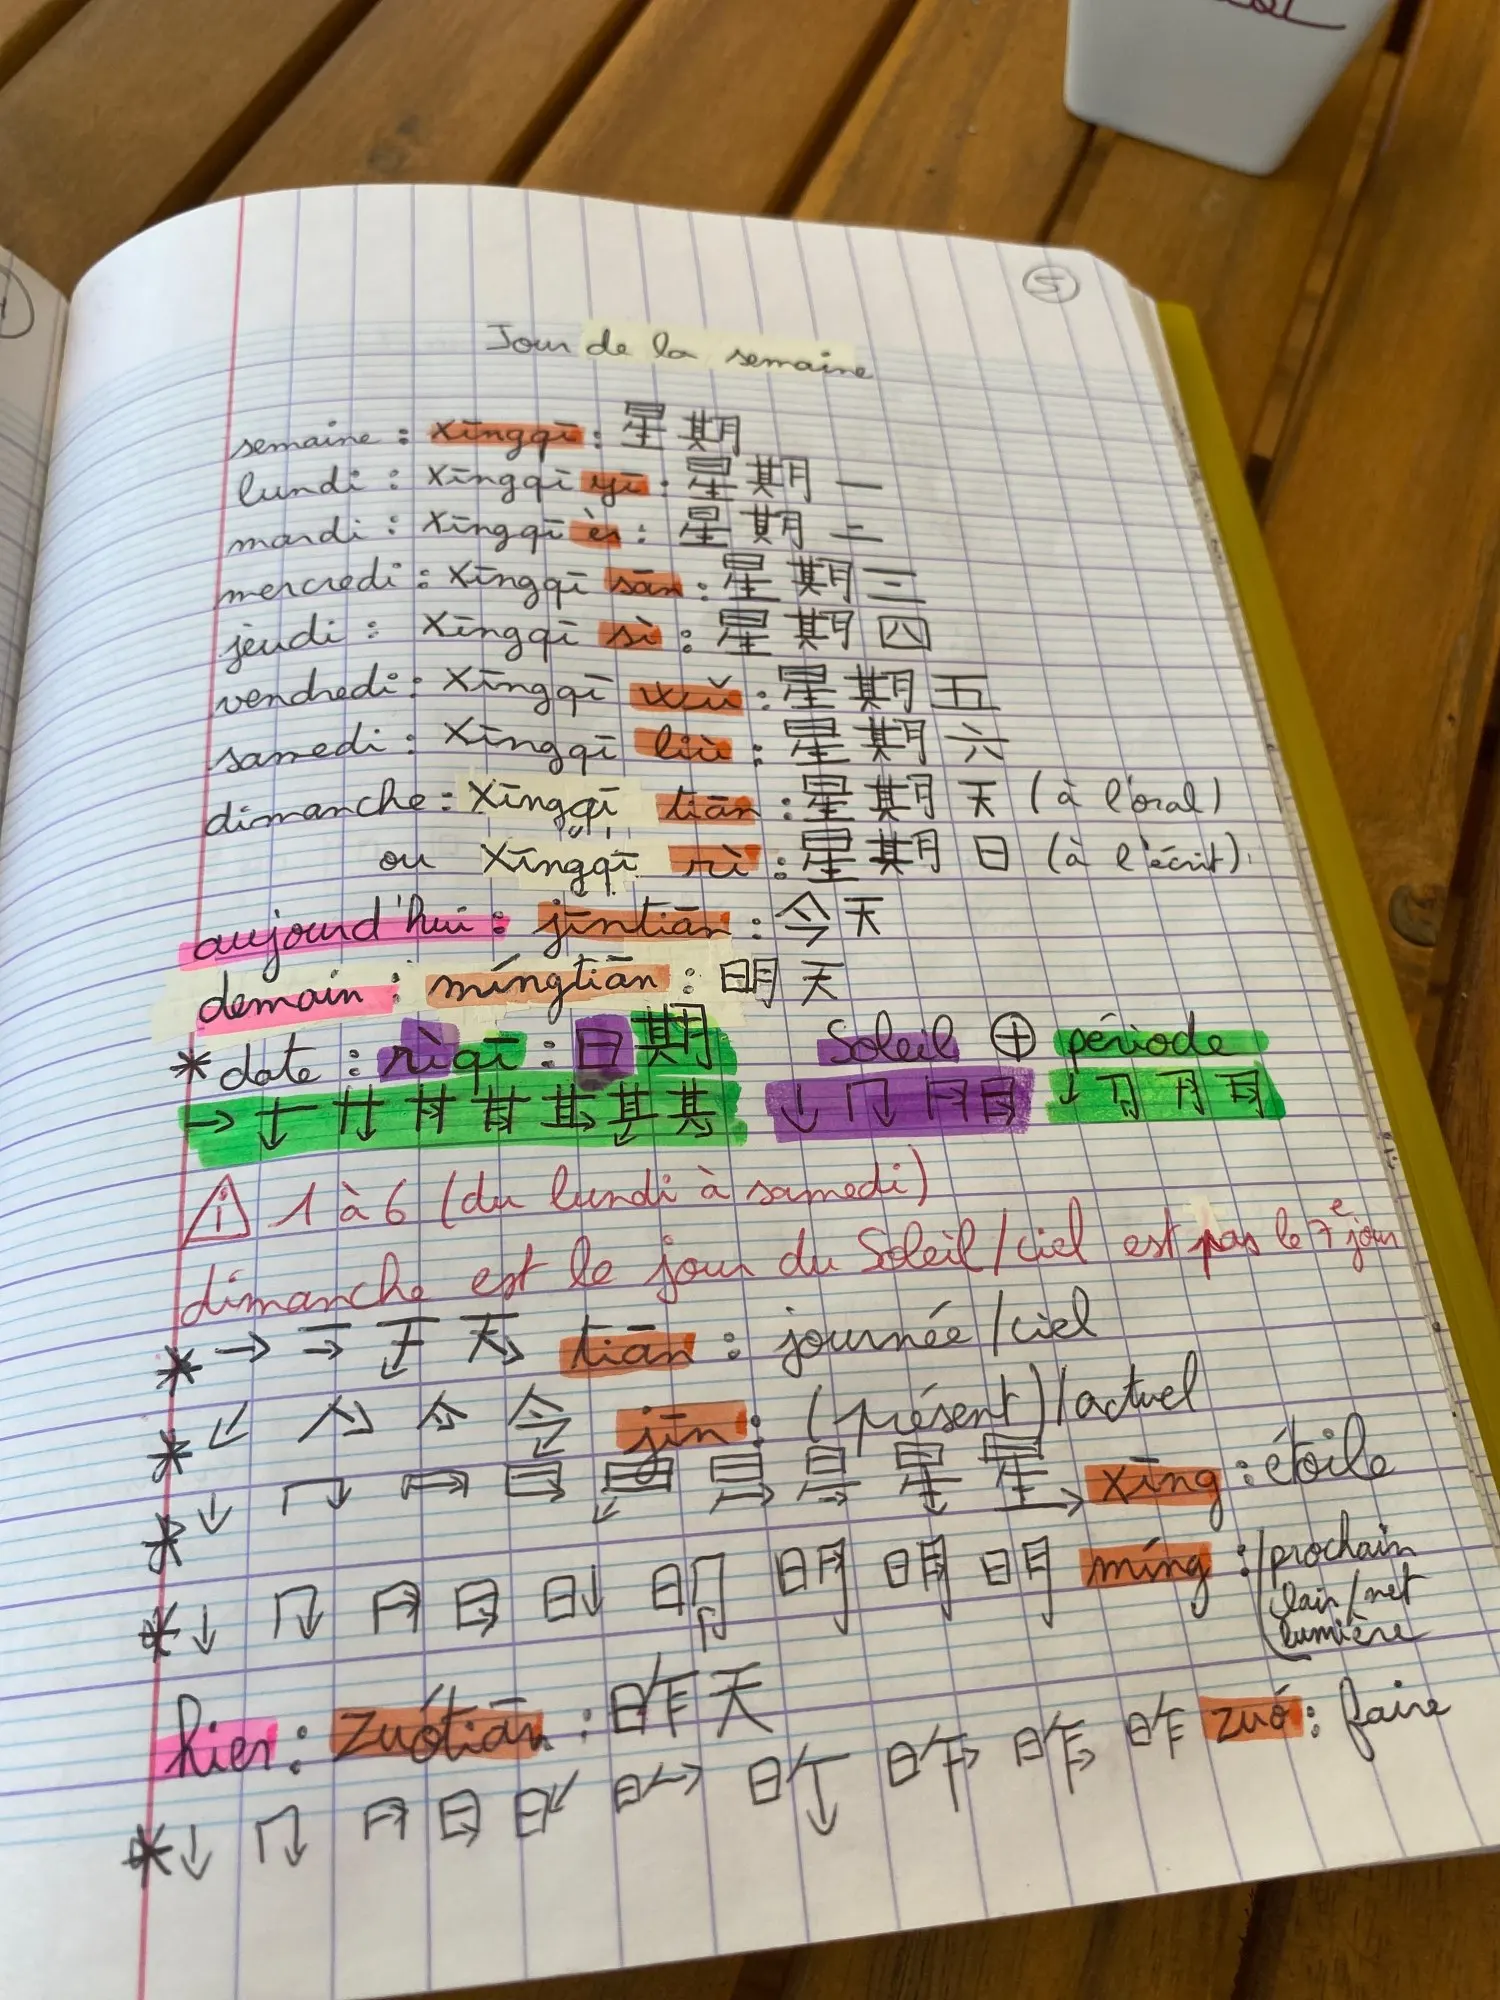 5
Jour de la semaine
semaine : xīngqī : 星期
lundi : xīngqī yī : 星期一
mardi : xīngqī èr : 星期二
mercredi : xīngqī sān : 星期三
jeudi : xīngqī sì : 星期四
vendredi : xīngqī wǔ : 星期五
samedi : xīngqī liù : 星期六
dimanche : xīngqī tiān : 星期天 (à l'oral)
ou xīngqī rì : 星期日 (à l'écrit).
aujourd'hui : jīntiān : 今天
demain : míngtiān : 明天
* date : rìqī : 日期 Soleil ⊕ période
⚠ 1 à 6 (du lundi à samedi)
dimanche est le jour du Soleil/ciel est pas le 7e jour
* 天 tiān : journée/ciel
* 今 jīn : (présent)/actuel
* 星 xīng : étoile
* 明 míng : prochain
clair/net
lumière
hier : zuótiān : 昨天 昨 zuó : faire
*